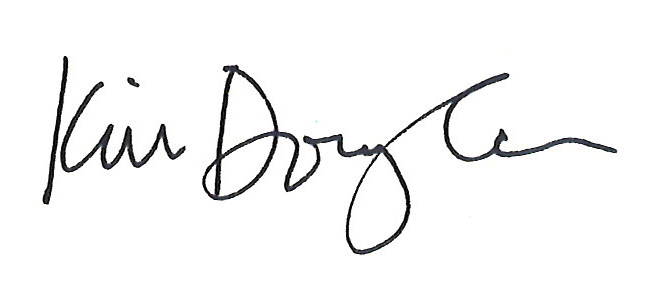 Kim Douglas